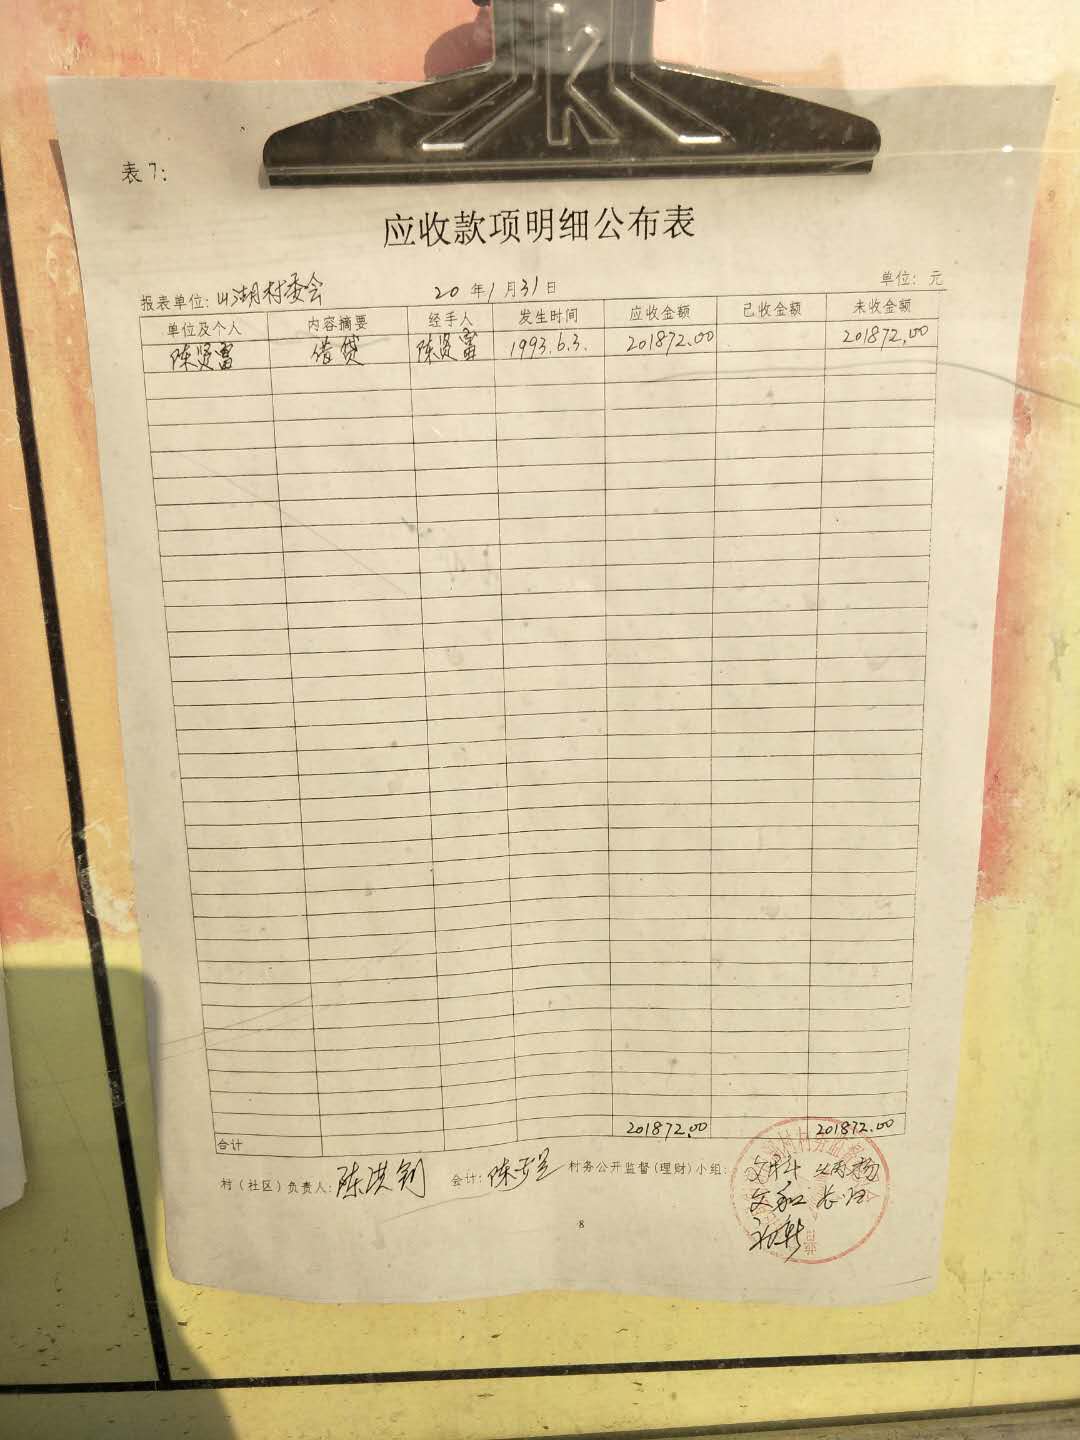 K
表7:
应收款项明细公布表
报表单位: 山湖村委会 20 年 1 月 31 日 单位: 元
单位及个人 内容摘要 经手人 发生时间 应收金额 已收金额 未收金额
陈贤富 借贷 陈贤富 1993.6.3. 201872.00 201872.00
合计 201872.00 201872.00
村（社区）负责人: 陈洪钊 会计: 村务公开监督(理财)小组:
8